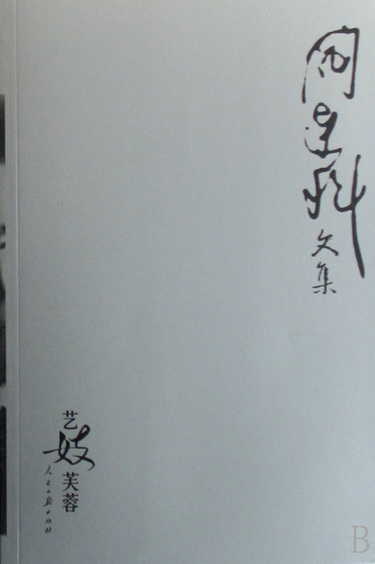 阎连科
文集
艺妓芙蓉
人民日报出版社
B